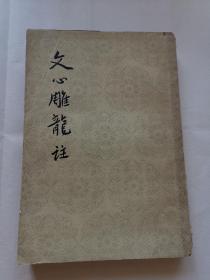 文心雕龍註